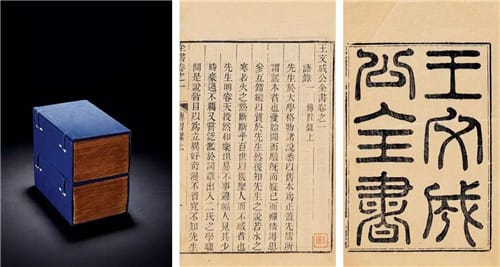 王文成
公全書
王文成公全書卷之一
語錄一 傳習錄上
先生於大學格物諸說悉以舊本為正蓋先儒所
謂誤本者也愛始聞而駭既而疑已而殫精竭思
參互錯綜以質於先生然後知先生之說若水之
寒若火之熱斷斷乎百世以俟聖人而不惑者也
先生明睿天授然和樂坦易不事邊幅人見其少
時豪邁不羈又嘗泛濫於詞章出入二氏之學驟
聞是說皆目以為立異好奇漫不省究不知先生
全書卷之一 傳習錄上